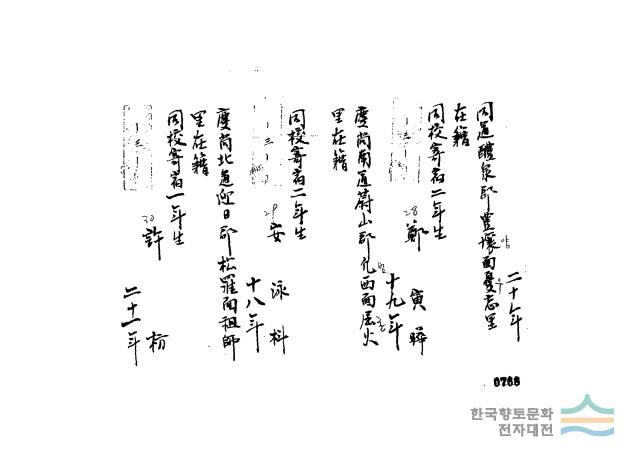 二十年
同道醴泉郡豊壤面憂忘里
在籍
同校寄宿二年生
28 鄭 寅 曄
十九年
慶尙南道蔚山郡凡西面屈火
里在籍
同校寄宿二年生
29 安 泳 科
十八年
慶尙北道迎日郡松羅面祖師
里在籍
同校寄宿一年生
30 許
二十一年
0766
한국향토문화
전자대전